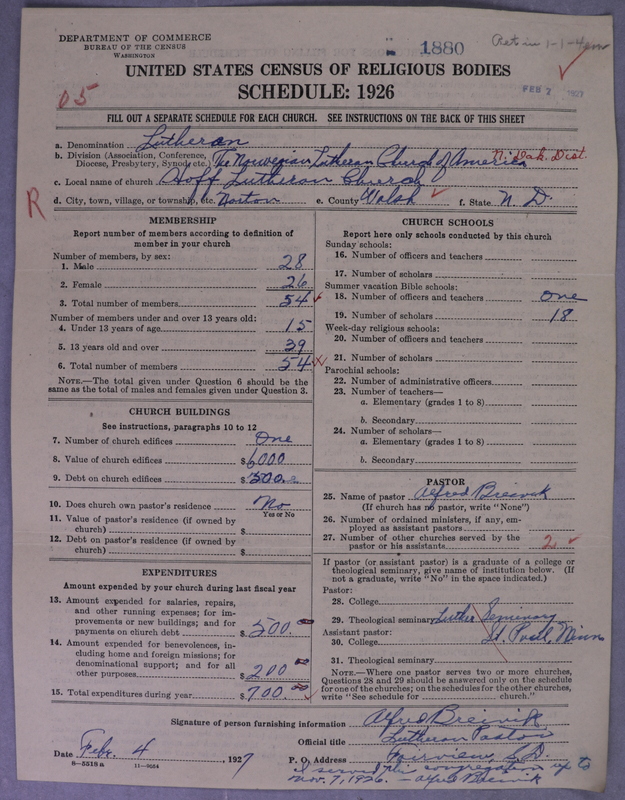 DEPARTMENT OF COMMERCE
BUREAU OF THE CENSUS
WASHINGTON
1880
UNITED STATES CENSUS OF RELIGIOUS BODIES
SCHEDULE: 1926
FEB 7 1927
05
FILL OUT A SEPARATE SCHEDULE FOR EACH CHURCH. SEE INSTRUCTIONS ON THE BACK OF THIS SHEET
a. Denomination Lutheran
b. Division (Association, Conference, Diocese, Presbytery, Synod, etc.) The Norwegian Lutheran Church of America N. Dak. Dist.
c. Local name of church Hoff Lutheran Church
d. City, town, village, or township, etc. Norton e. County Walsh f. State N. D.
R
MEMBERSHIP
Report number of members according to definition of
member in your church
Number of members, by sex:
1. Male 28
2. Female 26
3. Total number of members 54
Number of members under and over 13 years old:
4. Under 13 years of age 15
5. 13 years old and over 39
6. Total number of members 54
NOTE.—The total given under Question 6 should be the
same as the total of males and females given under Question 3.
CHURCH BUILDINGS
See instructions, paragraphs 10 to 12
7. Number of church edifices One
8. Value of church edifices $6000
9. Debt on church edifices $
10. Does church own pastor's residence No
Yes or No
11. Value of pastor's residence (if owned by
church) $
12. Debt on pastor's residence (if owned by
church) $
EXPENDITURES
Amount expended by your church during last fiscal year
13. Amount expended for salaries, repairs,
and other running expenses; for im-
provements or new buildings; and for
payments on church debt $500.00
14. Amount expended for benevolences, in-
cluding home and foreign missions; for
denominational support; and for all
other purposes $200.00
15. Total expenditures during year $700.00
CHURCH SCHOOLS
Report here only schools conducted by this church
Sunday schools:
16. Number of officers and teachers
17. Number of scholars
Summer vacation Bible schools:
18. Number of officers and teachers One
19. Number of scholars 18
Week-day religious schools:
20. Number of officers and teachers
21. Number of scholars
Parochial schools:
22. Number of administrative officers
23. Number of teachers—
a. Elementary (grades 1 to 8)
b. Secondary
24. Number of scholars—
a. Elementary (grades 1 to 8)
b. Secondary
PASTOR
25. Name of pastor Alfred Breivik
(If church has no pastor, write "None")
26. Number of ordained ministers, if any, em-
ployed as assistant pastors
27. Number of other churches served by the
pastor or his assistants 2
If pastor (or assistant pastor) is a graduate of a college or
theological seminary, give name of institution below. (If
not a graduate, write "No" in the space indicated.)
Pastor:
28. College
29. Theological seminary Luther Seminary
Assistant pastor: St. Paul, Minn
30. College
31. Theological seminary
NOTE.—Where one pastor serves two or more churches,
Questions 28 and 29 should be answered only on the schedule
for one of the churches; on the schedules for the other churches,
write "See schedule for church."
Signature of person furnishing information Alfred Breivik
Official title Lutheran Pastor
Date Febr. 4, 1927 P. O. Address Fairview, S.D.
8—5518 a 11—9054
I served this congregation up to
Nov. 7, 1926. — Alfred Breivik